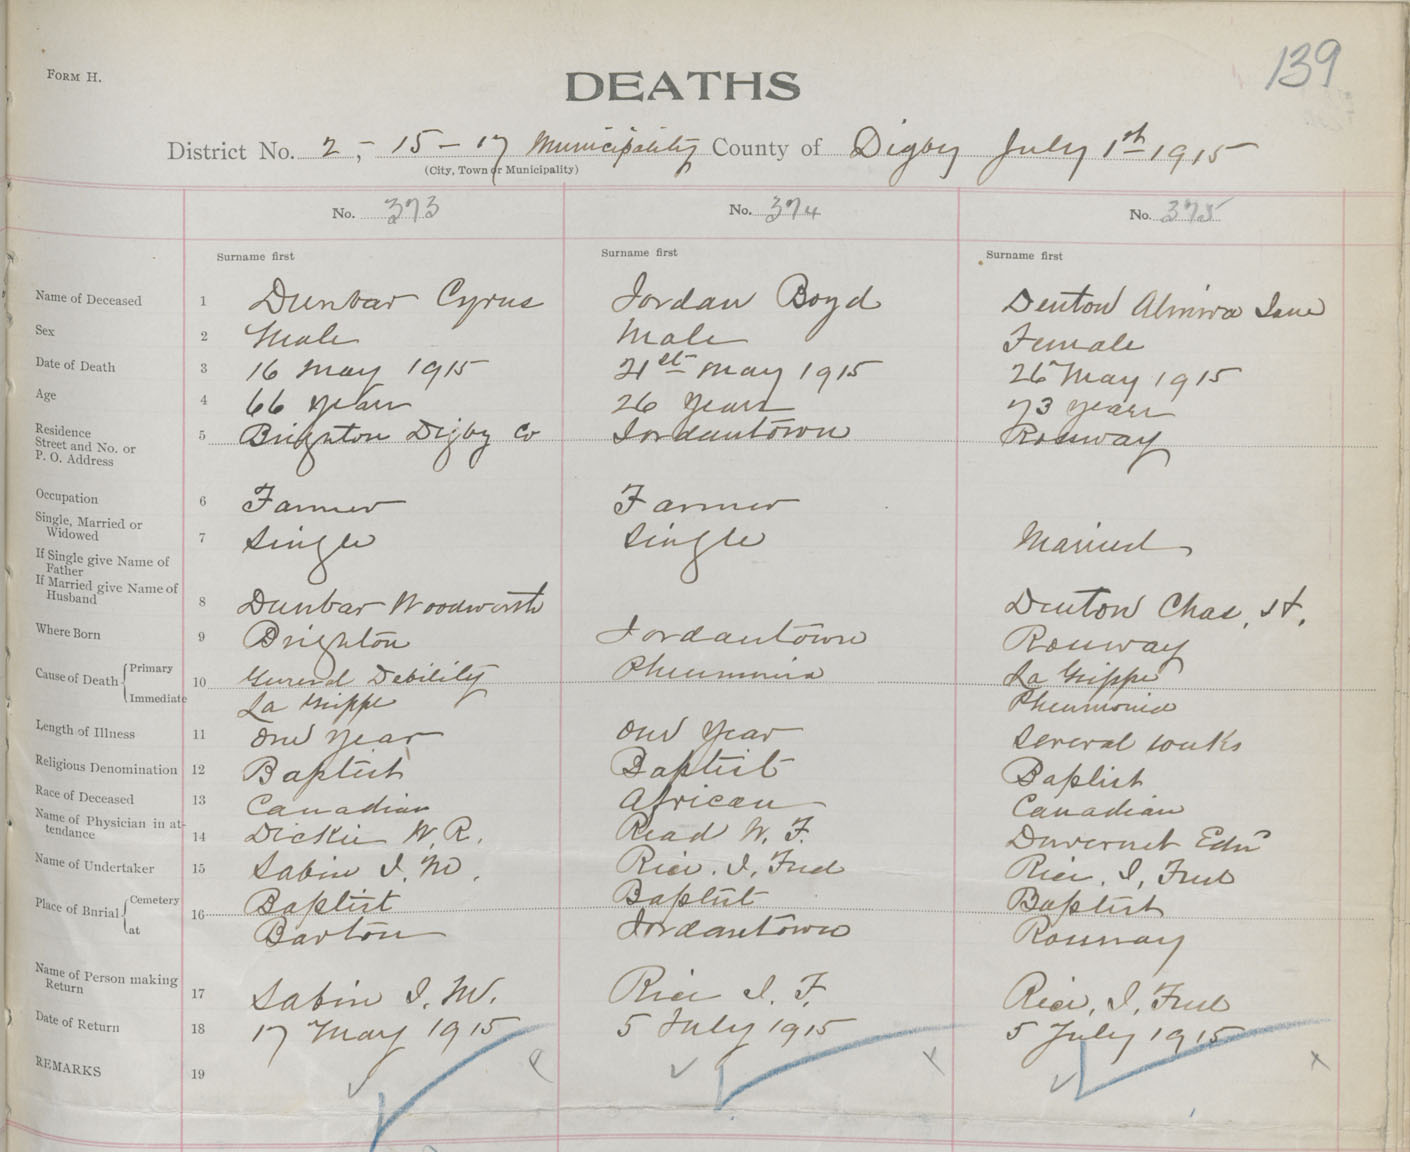 139
FORM H.
DEATHS
District No. 2,- 15 - 17 Municipality County of Digby July 1st 1915
(City, Town or Municipality)
No. 373 No. 374 No. 375
Surname first Surname first Surname first
Name of Deceased 1 Dunbar Cyrus Jordan Boyd Denton Almira Jane
Sex 2 Male Male Female
Date of Death 3 16 May 1915 21st May 1915 26 May 1915
Age 4 66 years 26 years 73 years
Residence
Street and No. or
P. O. Address 5 Brighton Digby Co Jordantown Rouway
Occupation 6 Farmer Farmer
Single, Married or
Widowed 7 Single Single Married
If Single give Name of
Father
If Married give Name of
Husband 8 Dunbar Woodworth Denton Chas. H.
Where Born 9 Brighton Jordantown Rouway
Cause of Death Primary 10 General Debility Pneumonia La Grippe
Immediate La Grippe Pneumonia
Length of Illness 11 one year one year several weeks
Religious Denomination 12 Baptist Baptist Baptist
Race of Deceased 13 Canadian African Canadian
Name of Physician in at-
tendance 14 Dickie W. R. Read W. F. Duvernet Edw
Name of Undertaker 15 Sabin I. W. Rice. I. Fred Rice. I. Fred
Place of Burial Cemetery 16 Baptist Baptist Baptist
at Barton Jordantown Rouway
Name of Person making
Return 17 Sabin I. W. Rice I. F. Rice, I. Fred
Date of Return 18 17 May 1915 5 July 1915 5 July 1915
REMARKS 19